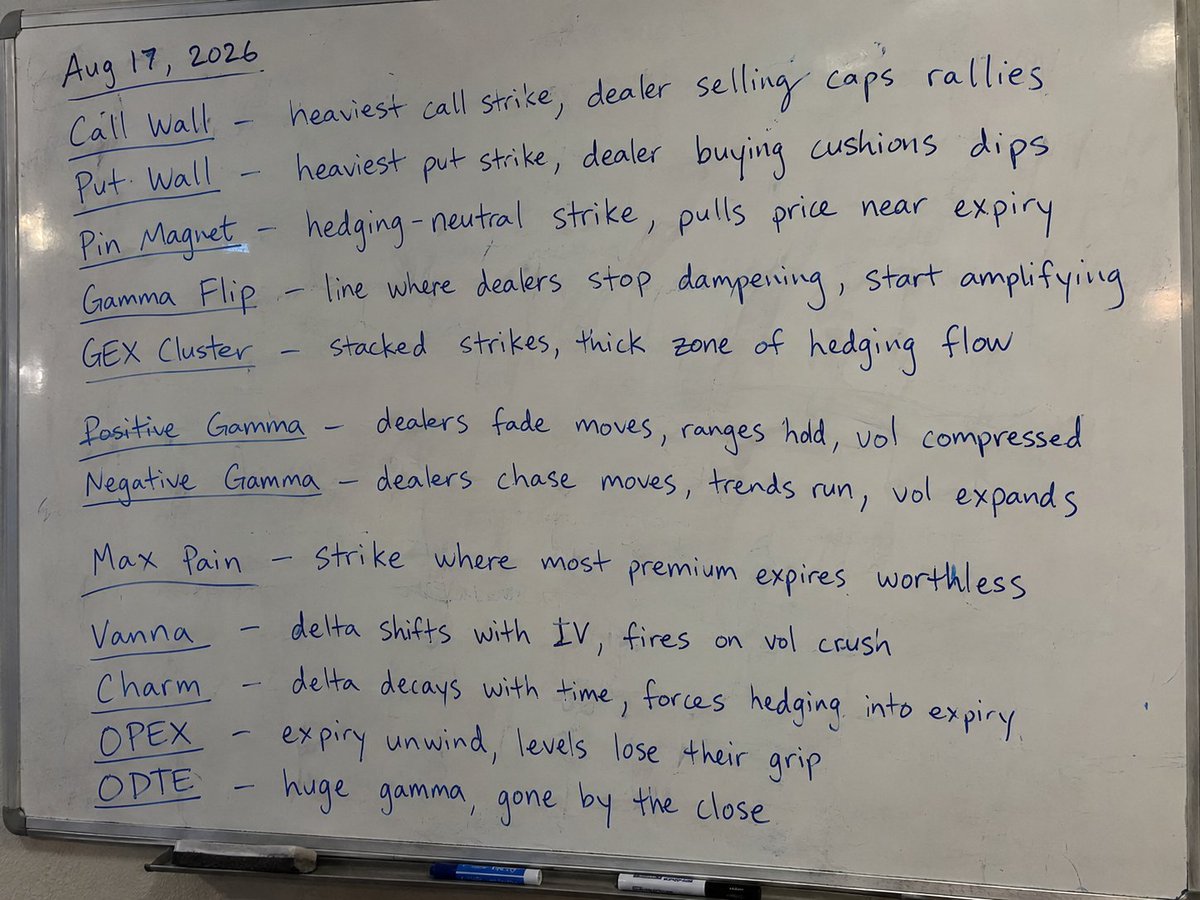 Aug 17, 2026
Call Wall - heaviest call strike, dealer selling caps rallies
Put Wall - heaviest put strike, dealer buying cushions dips
Pin Magnet - hedging-neutral strike, pulls price near expiry
Gamma Flip - line where dealers stop dampening, start amplifying
GEX Cluster - stacked strikes, thick zone of hedging flow
Positive Gamma - dealers fade moves, ranges hold, vol compressed
Negative Gamma - dealers chase moves, trends run, vol expands
Max Pain - strike where most premium expires worthless
Vanna - delta shifts with IV, fires on vol crush
Charm - delta decays with time, forces hedging into expiry
OPEX - expiry unwind, levels lose their grip
ODTE - huge gamma, gone by the close